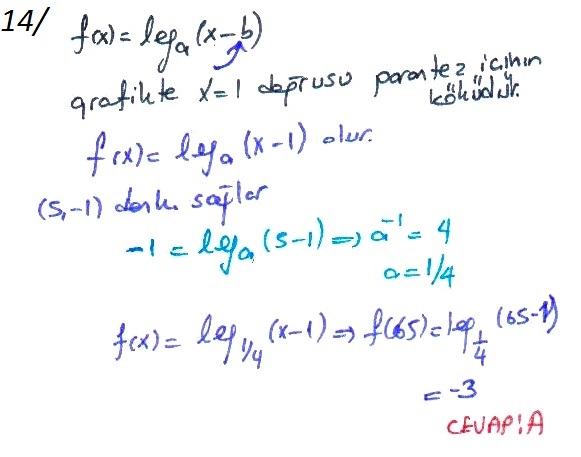 14/ f(x) = log_a (x-b)
grafikte x=1 doğrusu parantez içinin
köküdür.
f(x) = log_a (x-1) olur.
(5,-1) denk. sağlar
-1 = log_a (5-1) ⇒ a⁻¹ = 4
a = 1/4
f(x) = log_1/4 (x-1) ⇒ f(65) = log_1/4 (65-1)
= -3
CEVAP: A